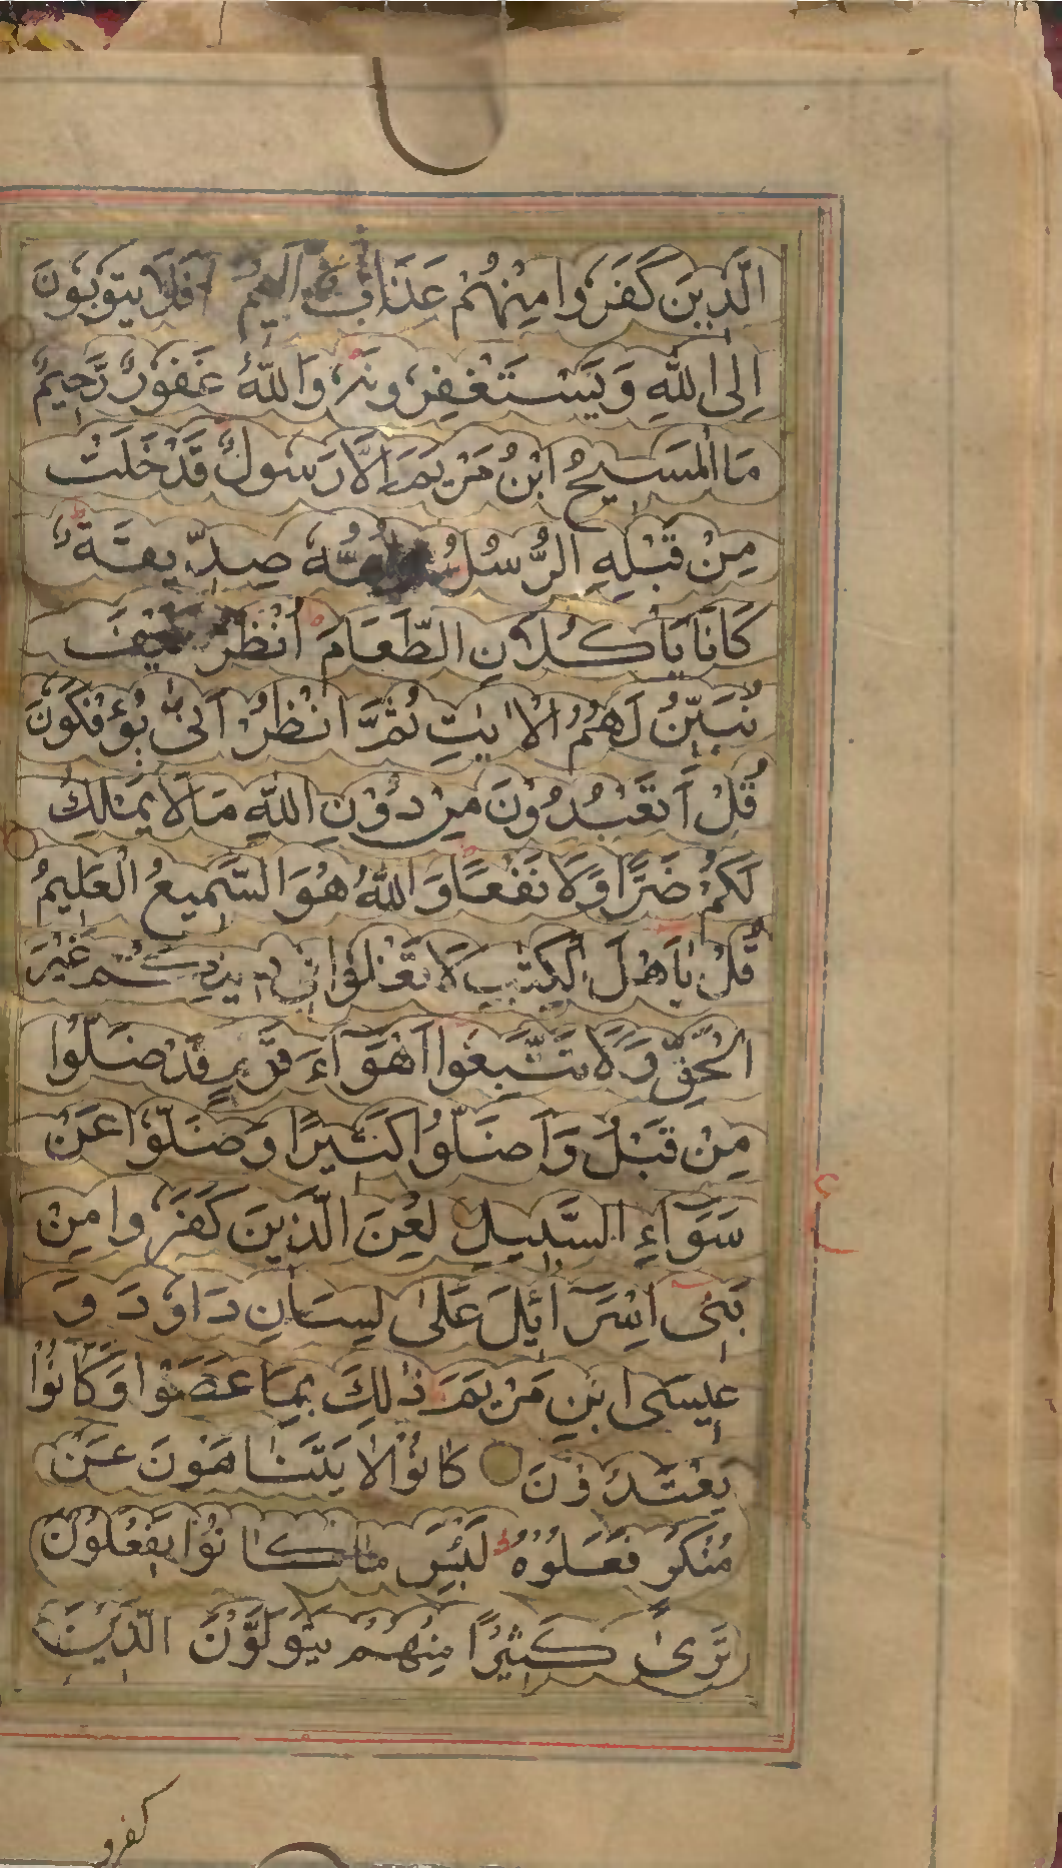 الَّذِينَ كَفَرُوا مِنْهُمْ عَذَابٌ اَلِيمٌ اَفَلَا يَتُوبُونَ
اِلَى اللّٰهِ وَيَسْتَغْفِرُونَهٗ وَاللّٰهُ غَفُورٌ رَّحِيمٌ
مَا الْمَسِيحُ ابْنُ مَرْيَمَ اِلَّا رَسُولٌ قَدْ خَلَتْ
مِنْ قَبْلِهِ الرُّسُلُ وَاُمُّهٗ صِدِّيقَةٌ
كَانَا يَأْكُلَانِ الطَّعَامَ اُنْظُرْ كَيْفَ
نُبَيِّنُ لَهُمُ الْاٰيٰتِ ثُمَّ انْظُرْ اَنّٰى يُؤْفَكُونَ
قُلْ اَتَعْبُدُوْنَ مِنْ دُوْنِ اللّٰهِ مَا لَا يَمْلِكُ
لَكُمْ ضَرًّا وَّلَا نَفْعًا وَاللّٰهُ هُوَ السَّمِيعُ الْعَلِيمُ
قُلْ يٰاَهْلَ الْكِتٰبِ لَا تَغْلُوْا فِي دِينِكُمْ غَيْرَ
الْحَقِّ وَلَا تَتَّبِعُوا اَهْوَآءَ قَوْمٍ قَدْ ضَلُّوْا
مِنْ قَبْلُ وَاَضَلُّوْا كَثِيرًا وَضَلُّوْا عَنْ
سَوَآءِ السَّبِيلِ لُعِنَ الَّذِينَ كَفَرُوا مِنْ
بَنِىٓ اِسْرَآئِيلَ عَلٰى لِسَانِ دَاوٗدَ وَ
عِيسَى ابْنِ مَرْيَمَ ذٰلِكَ بِمَا عَصَوْا وَّكَانُوْا
يَعْتَدُوْنَ كَانُوْا لَا يَتَنَاهَوْنَ عَنْ
مُنْكَرٍ فَعَلُوْهُ لَبِئْسَ مَا كَانُوْا يَفْعَلُوْنَ
تَرٰى كَثِيْرًا مِنْهُمْ يَتَوَلَّوْنَ الَّذِيْنَ
كفرو